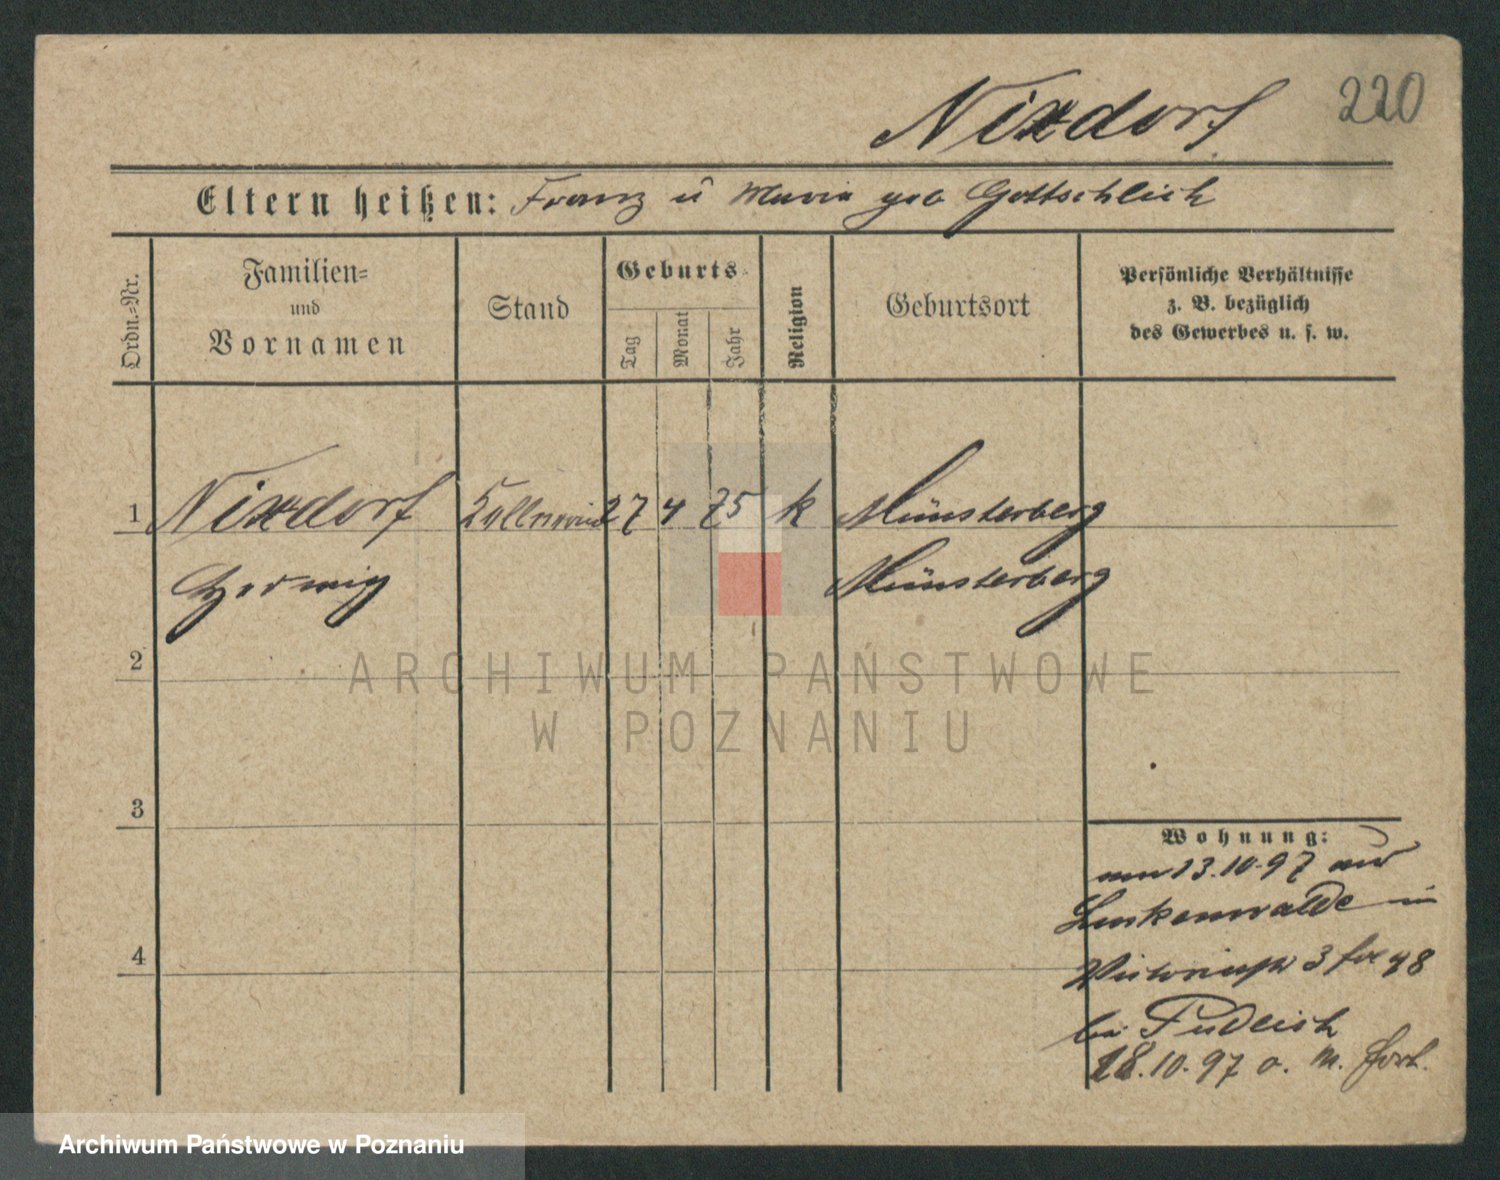 220
Nixdorf
Eltern heißen: Franz u Maria geb Gottschlich
Ordn.=Nr.
Familien=
und
Vornamen
Stand
Geburts=
Tag
Monat
Jahr
Religion
Geburtsort
Persönliche Verhältnisse
z. B. bezüglich
des Gewerbes u. s. w.
1 Nixdorf 27 4 75 k Münsterberg
Münsterberg
2
3
4
Wohnung:
am 13.10.97 aus
Luckenwalde in
3 48
bei
18.10.97 o. M. fort.
ARCHIWUM PAŃSTWOWE
W POZNANIU
Archiwum Państwowe w Poznaniu